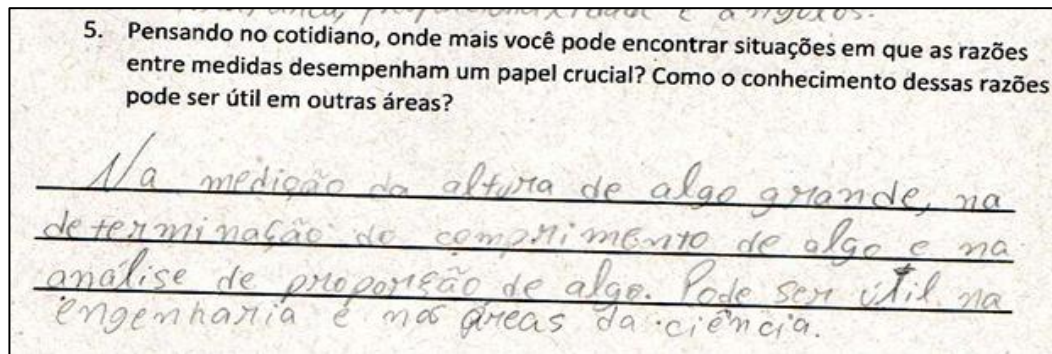 e ângulos.
5. Pensando no cotidiano, onde mais você pode encontrar situações em que as razões
entre medidas desempenham um papel crucial? Como o conhecimento dessas razões
pode ser útil em outras áreas?
Na medição da altura de algo grande, na
determinação do comprimento de algo e na
análise de proporção de algo. Pode ser útil na
engenharia e nas áreas da ciência.